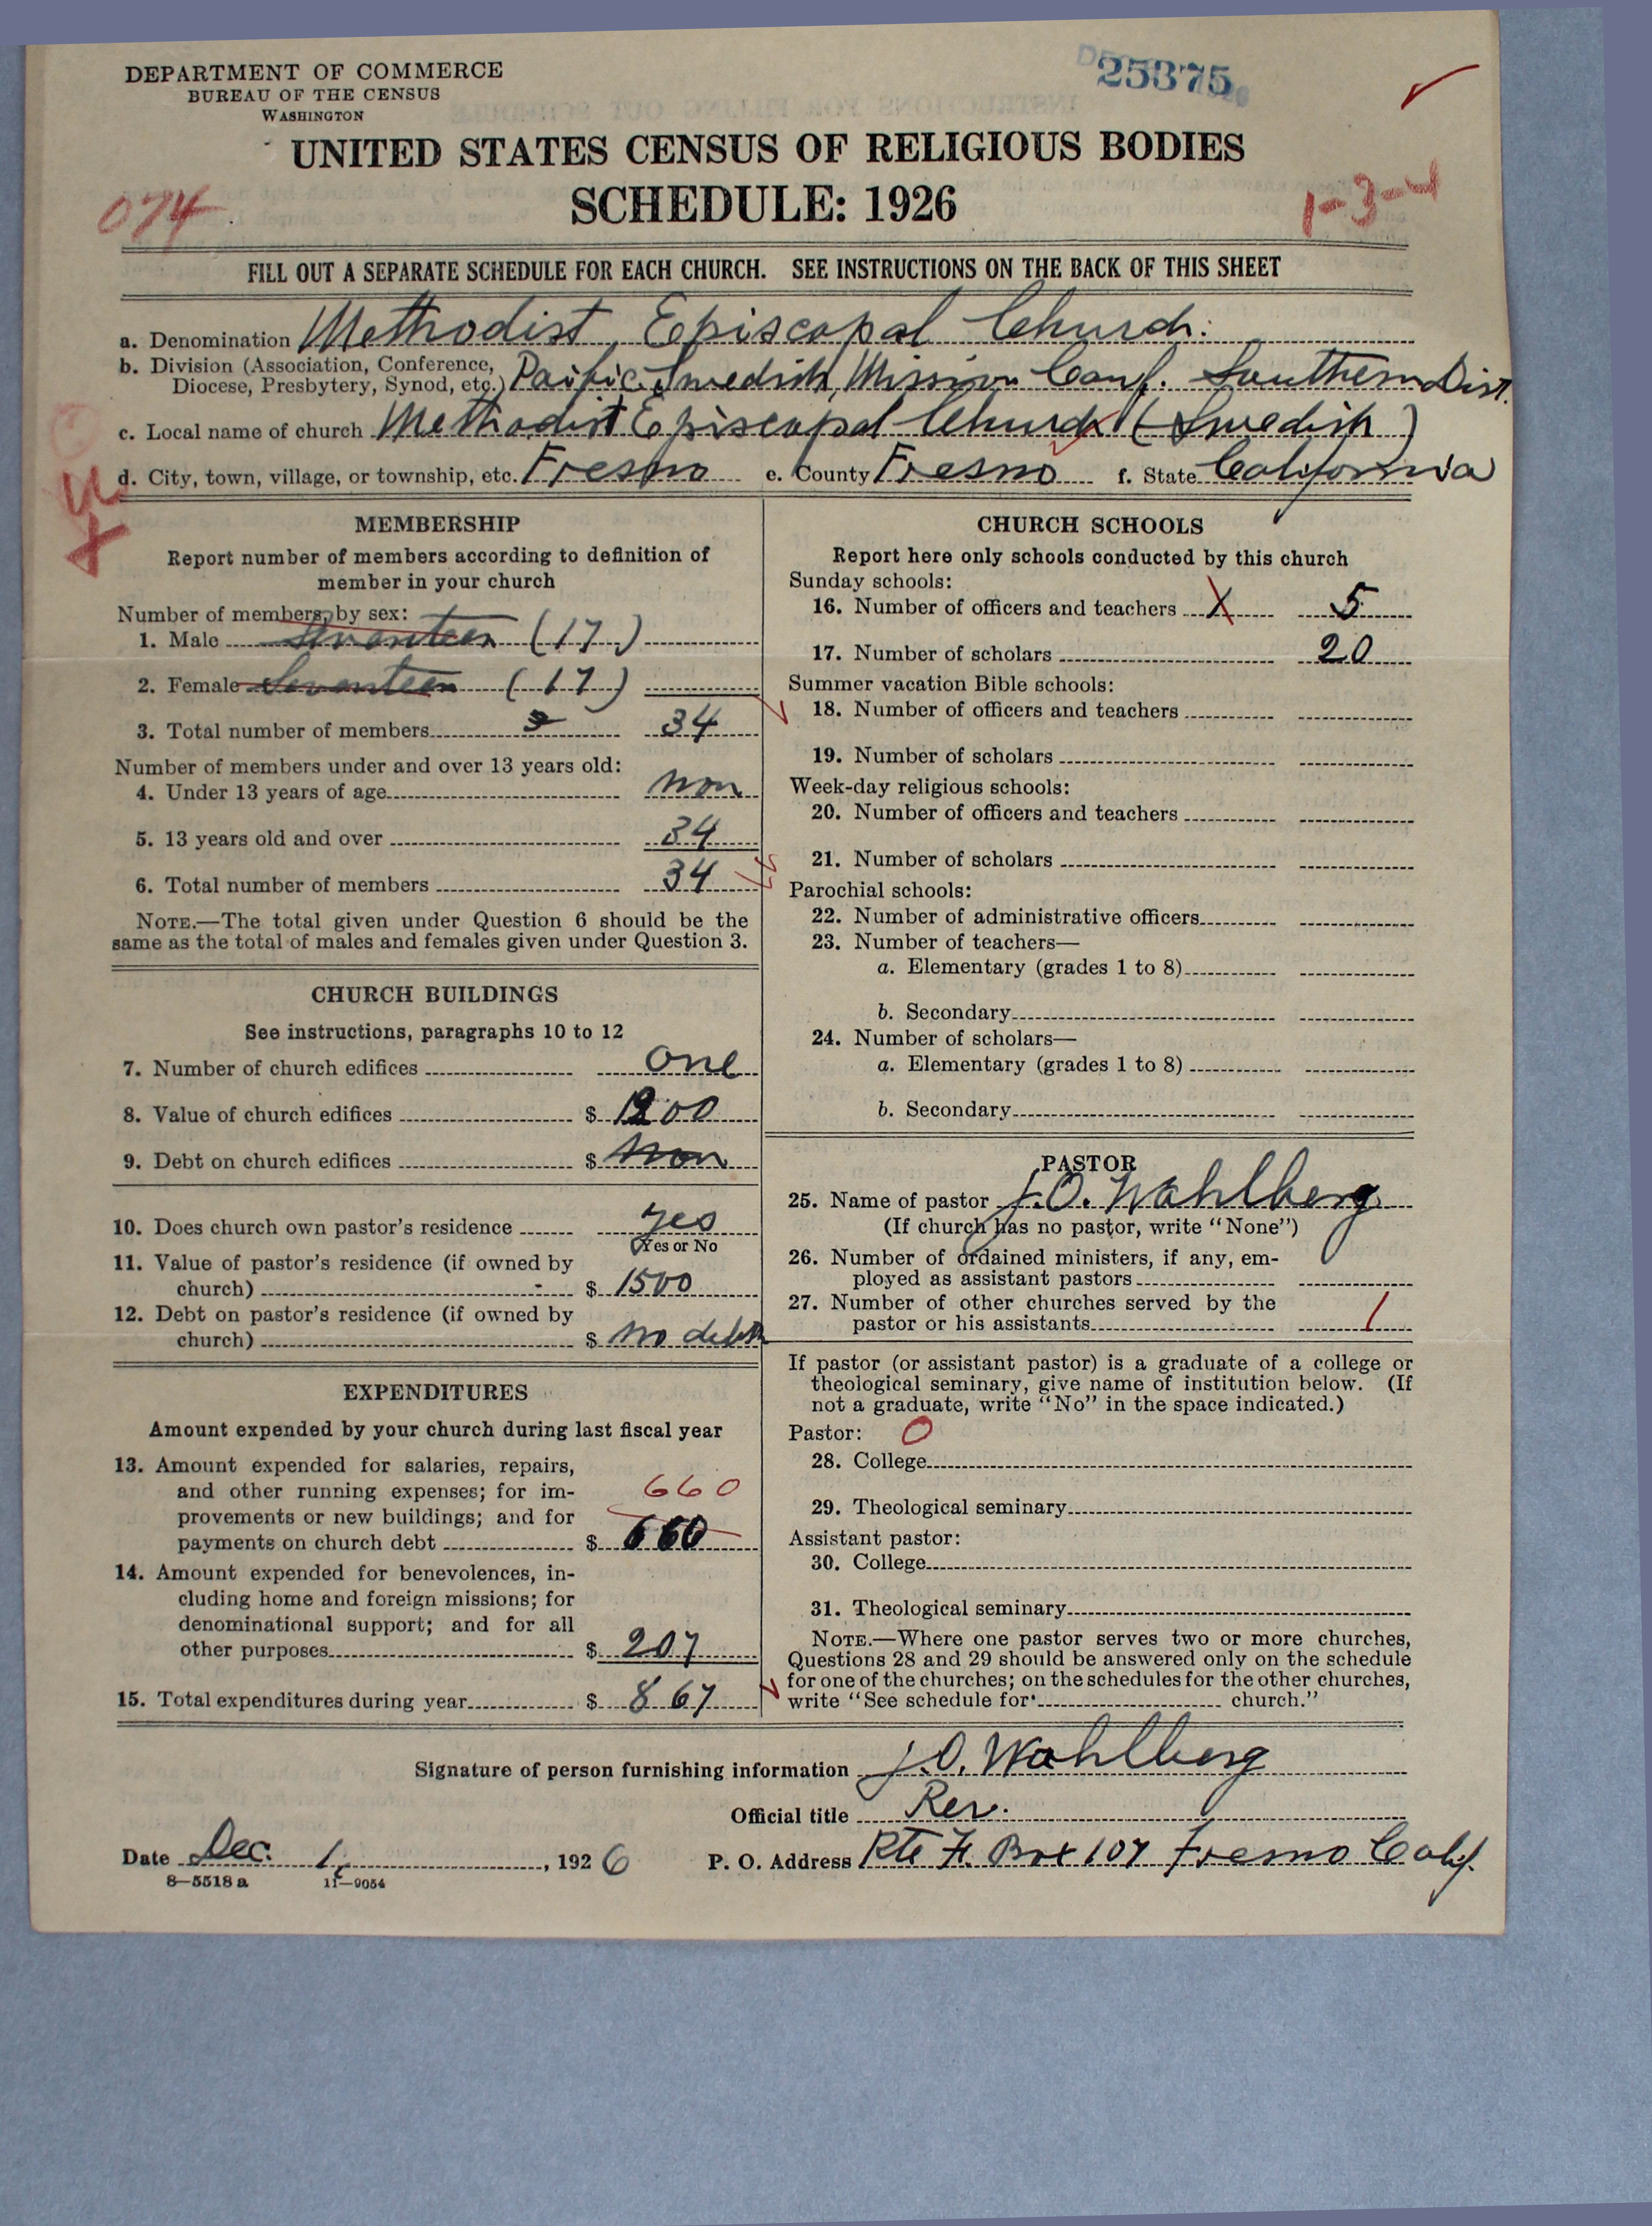 DEPARTMENT OF COMMERCE
BUREAU OF THE CENSUS
WASHINGTON
25375
UNITED STATES CENSUS OF RELIGIOUS BODIES
SCHEDULE: 1926
074
1-3-4
FILL OUT A SEPARATE SCHEDULE FOR EACH CHURCH. SEE INSTRUCTIONS ON THE BACK OF THIS SHEET
a. Denomination Methodist Episcopal Church.
b. Division (Association, Conference, Diocese, Presbytery, Synod, etc.) Pacific Swedish Mission Conf. Southern Dist.
c. Local name of church Methodist Episcopal Church (Swedish)
d. City, town, village, or township, etc. Fresno e. County Fresno f. State California
MEMBERSHIP
Report number of members according to definition of
member in your church
Number of members, by sex:
1. Male Seventeen (17)
2. Female Seventeen (17)
3. Total number of members 34
Number of members under and over 13 years old:
4. Under 13 years of age non
5. 13 years old and over 34
6. Total number of members 34
NOTE.—The total given under Question 6 should be the
same as the total of males and females given under Question 3.
CHURCH BUILDINGS
See instructions, paragraphs 10 to 12
7. Number of church edifices one
8. Value of church edifices $ 1200
9. Debt on church edifices $ non
10. Does church own pastor's residence yes
Yes or No
11. Value of pastor's residence (if owned by
church) $ 1500
12. Debt on pastor's residence (if owned by
church) $ no debth
EXPENDITURES
Amount expended by your church during last fiscal year
13. Amount expended for salaries, repairs,
and other running expenses; for im- 660
provements or new buildings; and for
payments on church debt $ 660
14. Amount expended for benevolences, in-
cluding home and foreign missions; for
denominational support; and for all
other purposes $ 207
15. Total expenditures during year $ 867
CHURCH SCHOOLS
Report here only schools conducted by this church
Sunday schools:
16. Number of officers and teachers X 5
17. Number of scholars 20
Summer vacation Bible schools:
18. Number of officers and teachers
19. Number of scholars
Week-day religious schools:
20. Number of officers and teachers
21. Number of scholars
Parochial schools:
22. Number of administrative officers
23. Number of teachers—
a. Elementary (grades 1 to 8)
b. Secondary
24. Number of scholars—
a. Elementary (grades 1 to 8)
b. Secondary
PASTOR
25. Name of pastor J.O. Wahlberg
(If church has no pastor, write "None")
26. Number of ordained ministers, if any, em-
ployed as assistant pastors
27. Number of other churches served by the
pastor or his assistants 1
If pastor (or assistant pastor) is a graduate of a college or
theological seminary, give name of institution below. (If
not a graduate, write "No" in the space indicated.)
Pastor: O
28. College
29. Theological seminary
Assistant pastor:
30. College
31. Theological seminary
NOTE.—Where one pastor serves two or more churches,
Questions 28 and 29 should be answered only on the schedule
for one of the churches; on the schedules for the other churches,
write "See schedule for church."
Signature of person furnishing information J.O. Wahlberg
Official title Rev.
Date Dec. 1, 1926 P. O. Address Rte F. Box 107 Fresno Calif.
8—5518 a 11—9054